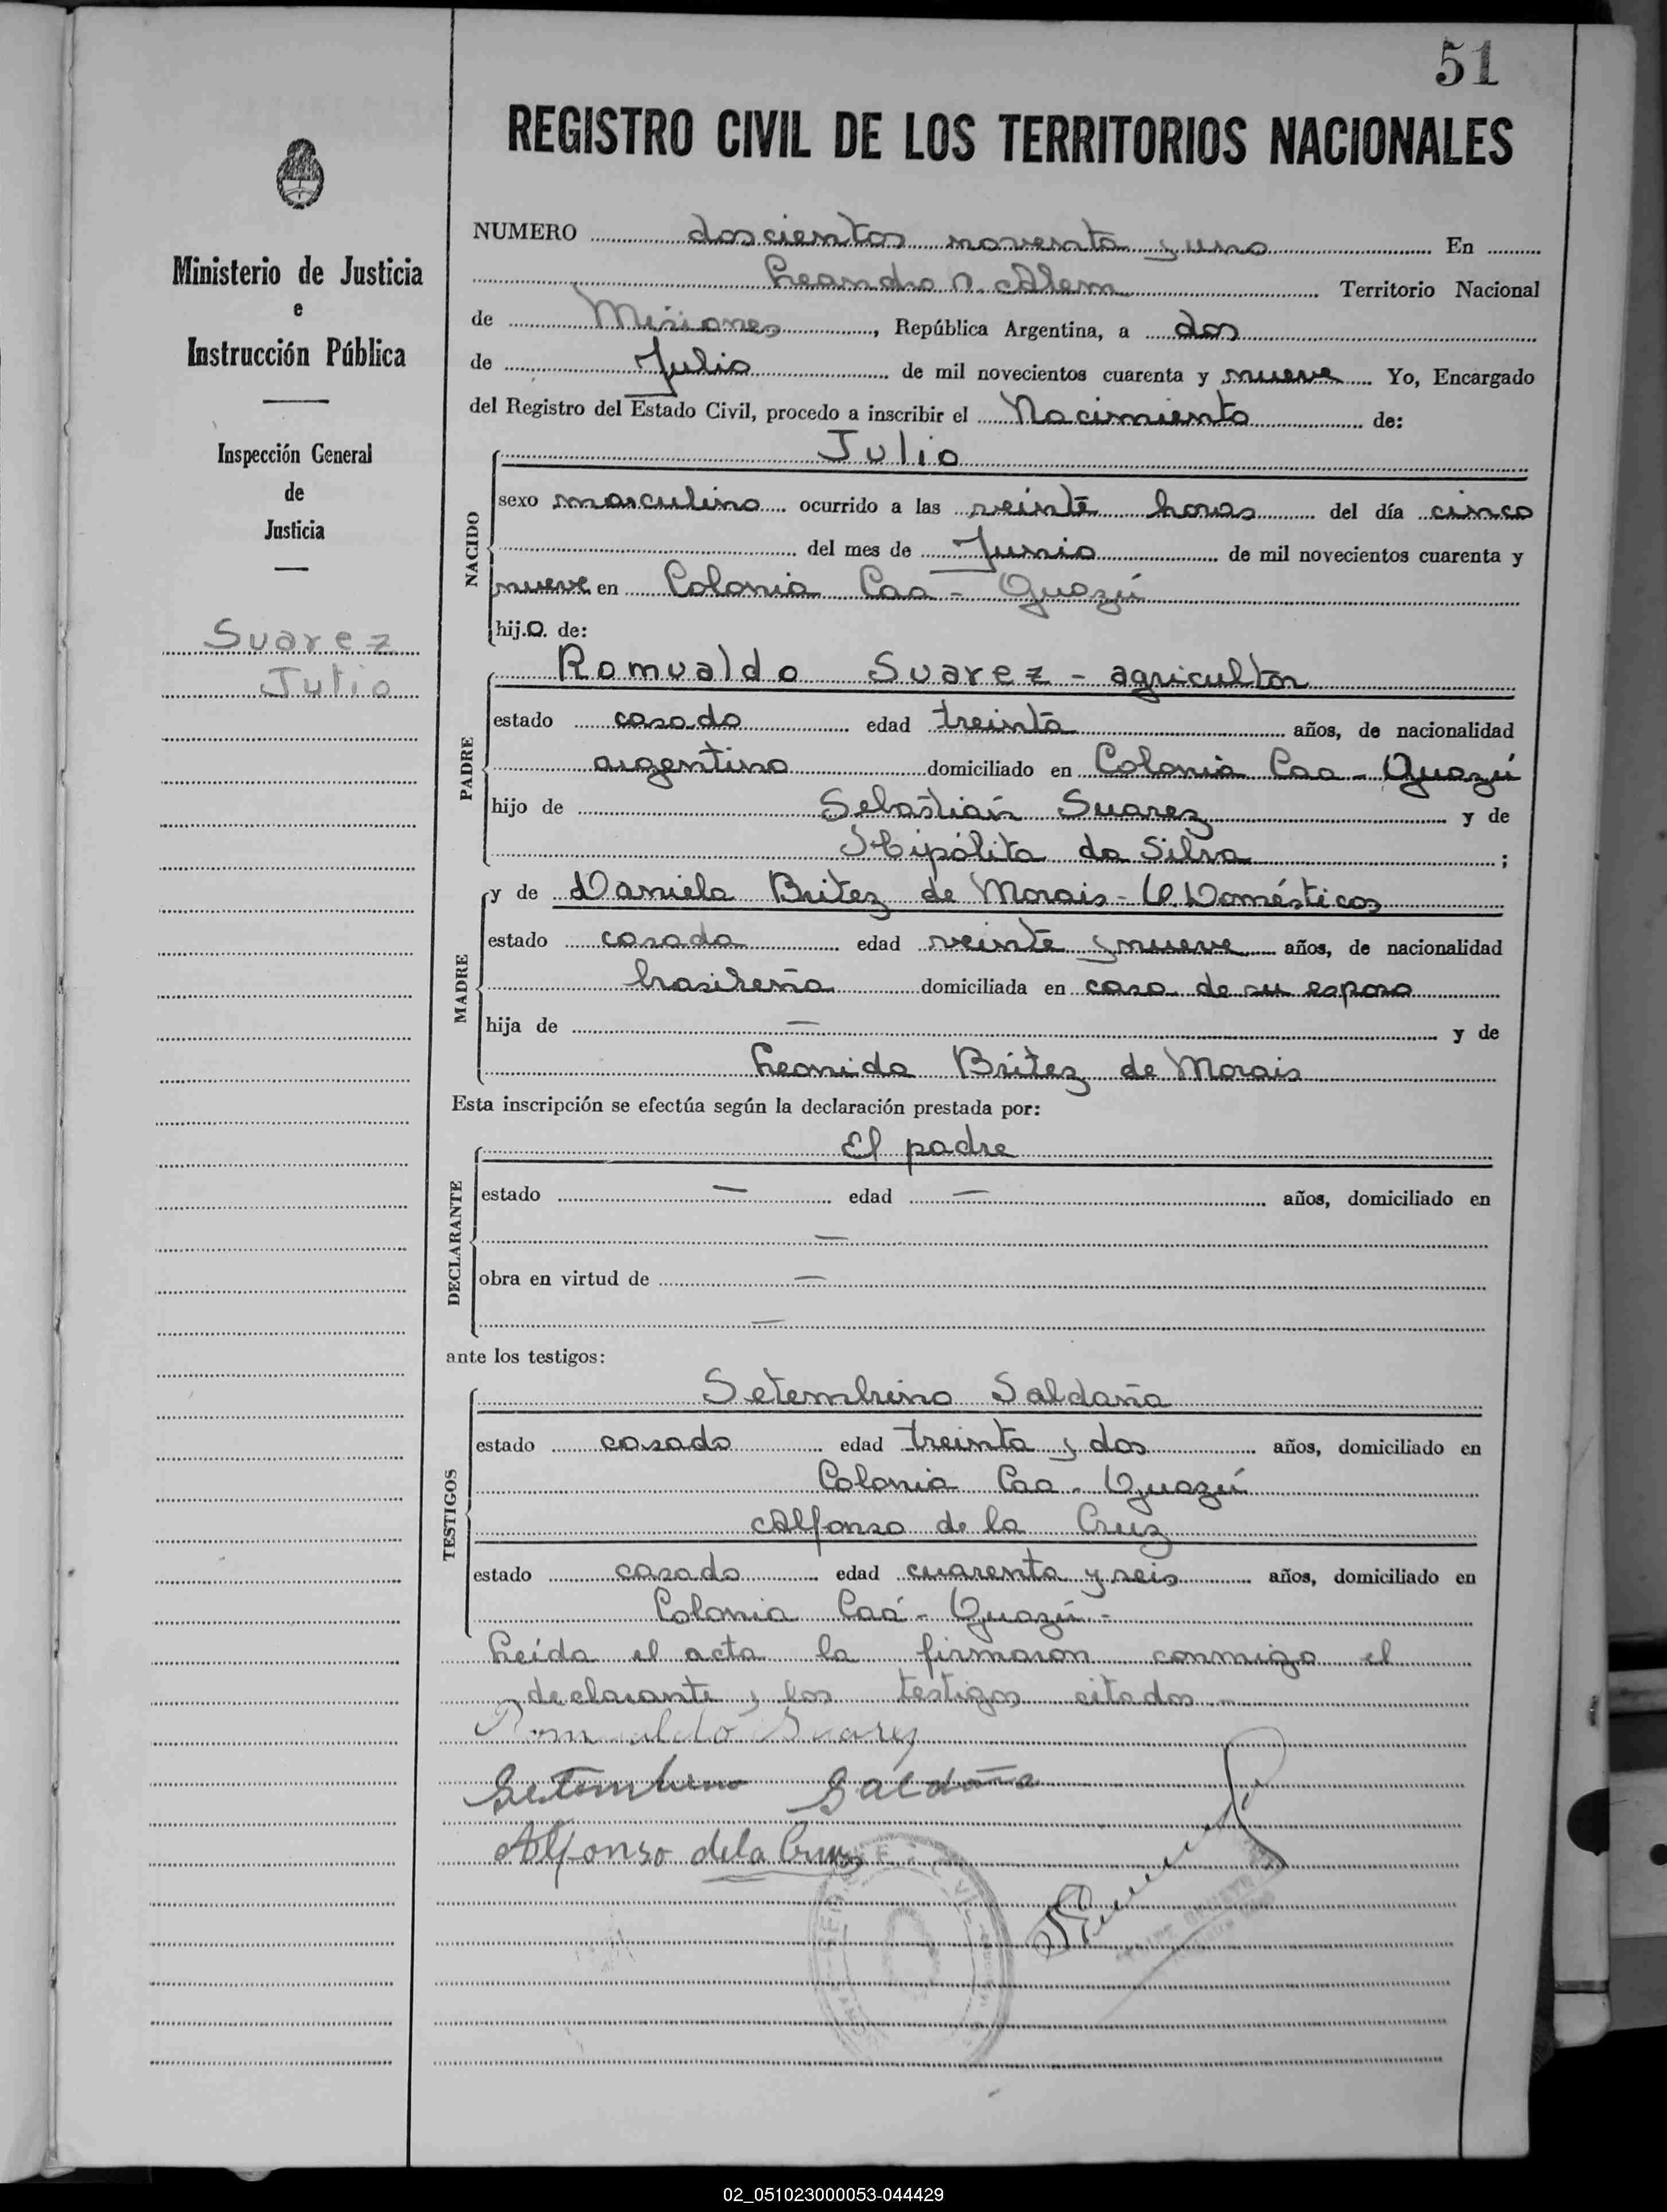 51
REGISTRO CIVIL DE LOS TERRITORIOS NACIONALES
Ministerio de Justicia
e
Instrucción Pública
Inspección General
de
Justicia
Suarez
Julio
NUMERO doscientos noventa y uno En
Leandro N. Alem Territorio Nacional
de Misiones, República Argentina, a dos
de Julio de mil novecientos cuarenta y nueve Yo, Encargado
del Registro del Estado Civil, procedo a inscribir el Nacimiento de:
NACIDO
Julio
sexo masculino ocurrido a las veinte horas del día cinco
del mes de Junio de mil novecientos cuarenta y
nueve en Colonia Caa-Guazú
hijo. de:
PADRE
Romualdo Suarez - agricultor
estado casado edad treinta años, de nacionalidad
argentino domiciliado en Colonia Caa-Guazú
hijo de Sebastián Suarez y de
Hipólita da Silva ;
MADRE
y de Daniela Britez de Morais - Q. Domésticos
estado casada edad veinte y nueve años, de nacionalidad
brasileña domiciliada en casa de su esposo
hija de — y de
Leonida Britez de Morais
Esta inscripción se efectúa según la declaración prestada por:
DECLARANTE
El padre
estado — edad — años, domiciliado en
—
obra en virtud de —
—
ante los testigos:
TESTIGOS
Setembrino Saldaña
estado casado edad treinta y dos años, domiciliado en
Colonia Caa-Guazú
Alfonso de la Cruz
estado casado edad cuarenta y seis años, domiciliado en
Colonia Caá-Guazú-
Leída el acta la firmaron conmigo el
declarante y los testigos citados.-
Romualdo Suarez
Setembrino Saldaña
Alfonso de la Cruz
02_051023000053-044429